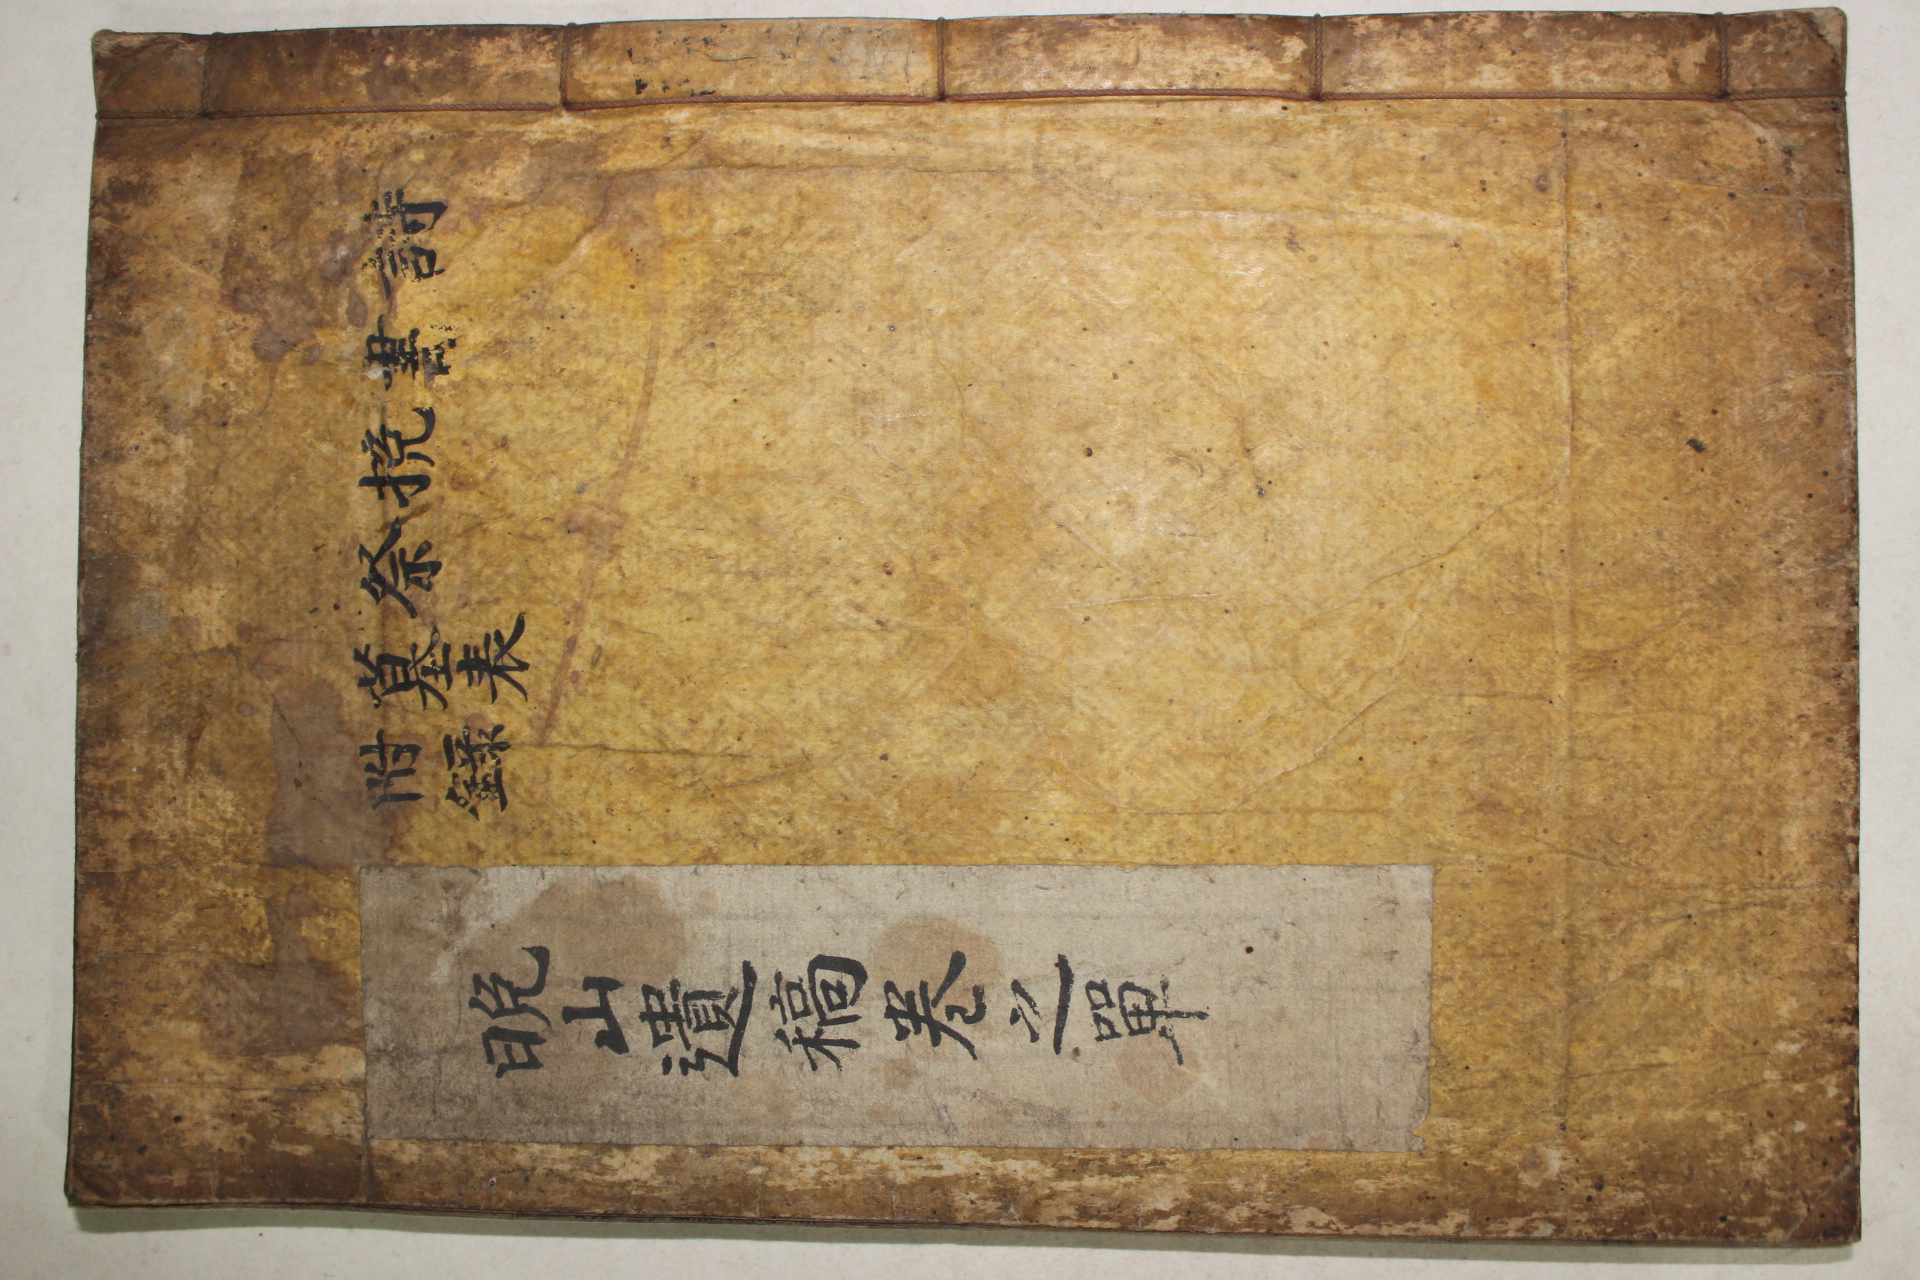 晩山遺稿卷之單
詩
書
挽
祭
墓表
附錄